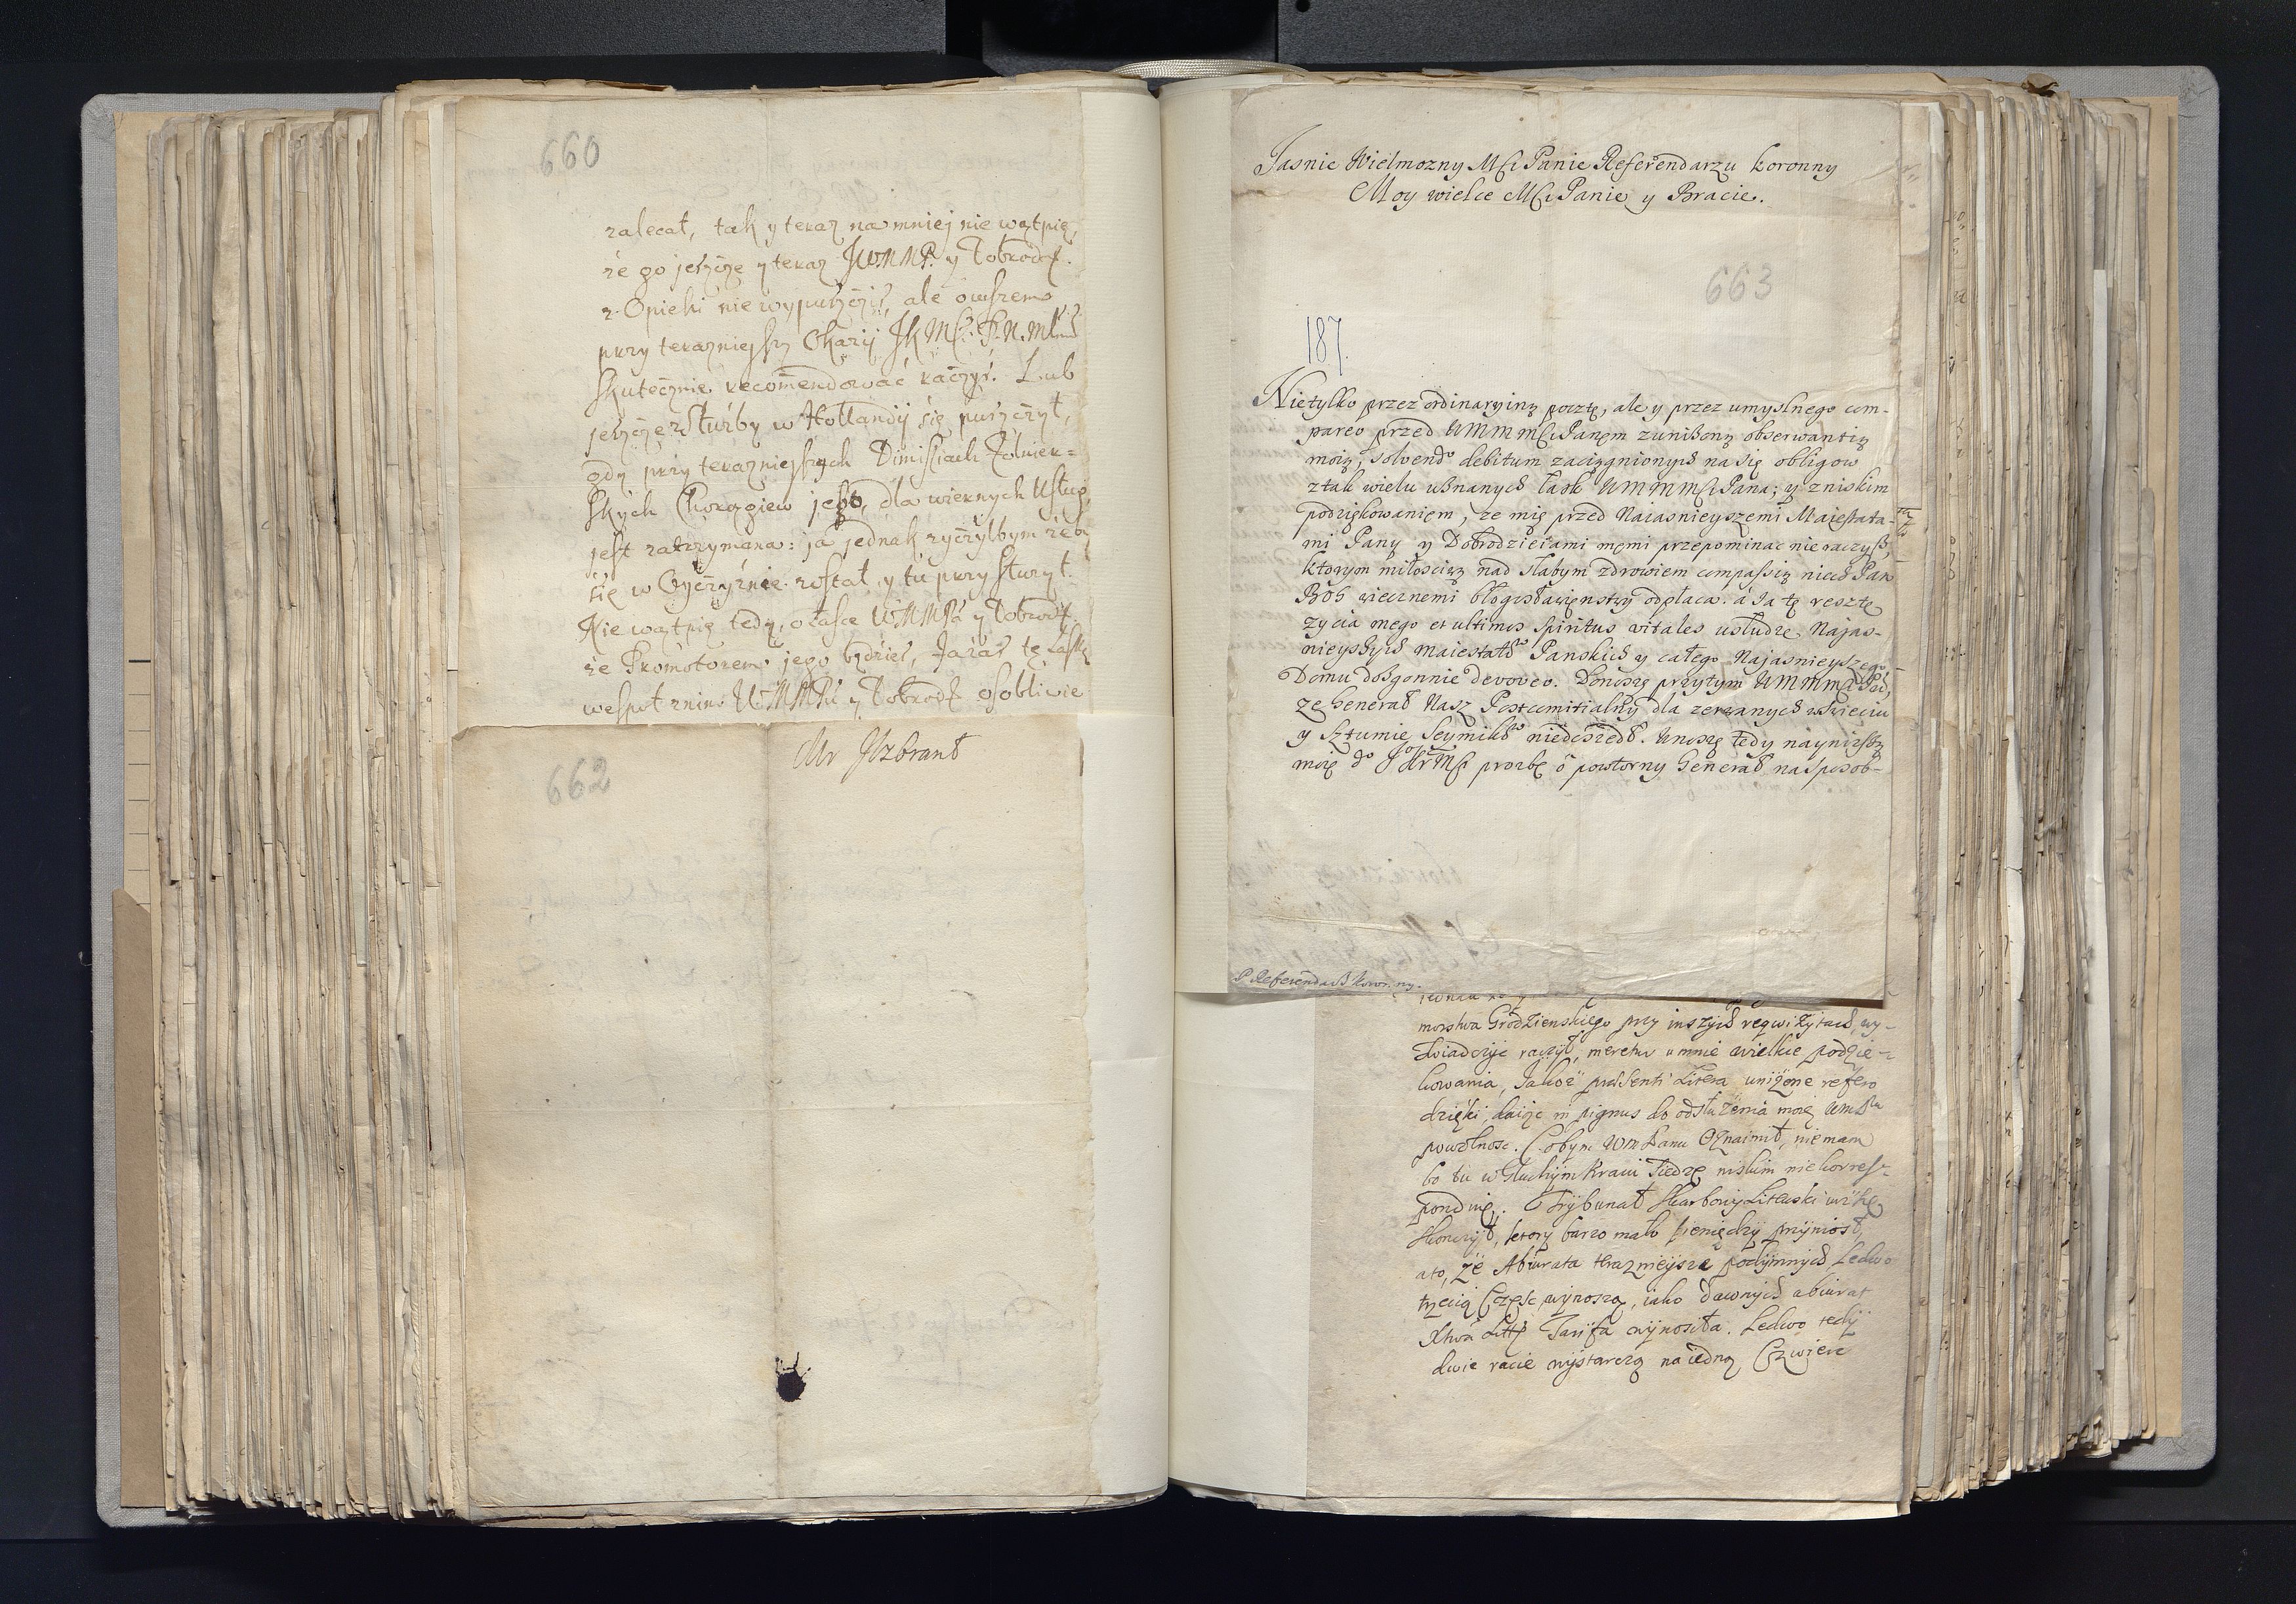 660
zalecał, tak y teraz namniej nie wątpię,
że go jeszcze y teraz JWMMP. y Dobrodz.
z Opieki nie wypuścisz, ale owszem
przy terazniejszy Okazij JKMCi P.N.Młmu
skutecznie recomendować raczysz. Lub
jeszcze Służby w Hollandij się puszczył,
gdy przy terazniejszych Dimissiach Żołnier=
skych Chorągiew jego, dla wiernych Usług,
jest zatrzymana: ja jednak zyczyłbym żeby
się w Oyczyźnie został y tu przysłużył.
Nie wątpię tedy, o łasce WMMPa y Dobrodz.
że Promotorem jego będziesz, Ja zaś tę Łaskę
wespoł znim WMMPu y Dobrodz. osobliwie
662
Mr Iszbrant
Jasnie Wielmozny MCi Panie Referendarzu Koronny
Moy wielce MCi Panie y Bracie.
663
187.
Nietylko przez ordinaryiną pocztę, ale y przez umyslnego com-
pareo przed WMMMCiPanem zunizoną obserwantią
moią, solvendo debitum zaciągnionych na się obligow
ztak wielu uznanych łask WMMMCiPana; y zniskim
podziękowaniem, ze mię przed Naiasnieyszemi Maiestata-
mi Pany y Dobrodzieiami memi przepominac nie raczysz,
ktorym miłoscią nad słabym zdrowiem compassią niech Pan
Bog wiecznemi błogosławienstwy odpłaca. a Ja tę resztę
zycia mego et ultimos Spiritus vitales usłudze Najas-
nieyszych Maiestatow Panskich y całego Najasnieyszego
Domu dozgonnie devoveo. Donoszę przytym WMMMCiPu,
ze Generał Nasz Postcomitialny dla zerwanych w Swieciu
y Sztumie Seymikow niedoszedł. Unoszę tedy nayniszszą
moię do JoKrMCi prozbę o powtorny Generał na sposob-
P. Referendarz Koronny.
morstwa Grodzienskiego przy inszych reqwizytach, wy-
swiadczyc raczył, meretur u mnie wielkie podzie-
kowania, Jakoz praesenti Litera unizone refero
dzięki, daiąc in pignus do odsłuzenia moię WMPu
powolnosc. Cobym WM Panu Oznaimił, nie mam
bo tu w Głuchym Kraiu Siedzę niskim nie korres-
ponduię. Trybunał Skarbowy Litewski
skonczył, ktory barzo mało pieniędzy przyniosł,
a to, ze Abiurata terazniejsza podymnych Ledwo
trzecią Częsc wynoszą, iako dawnych abiurat
Xtwa Litt Taryfa wynosiła. Ledwo tedy
dwie racie wystarczą na iedną Czwierc